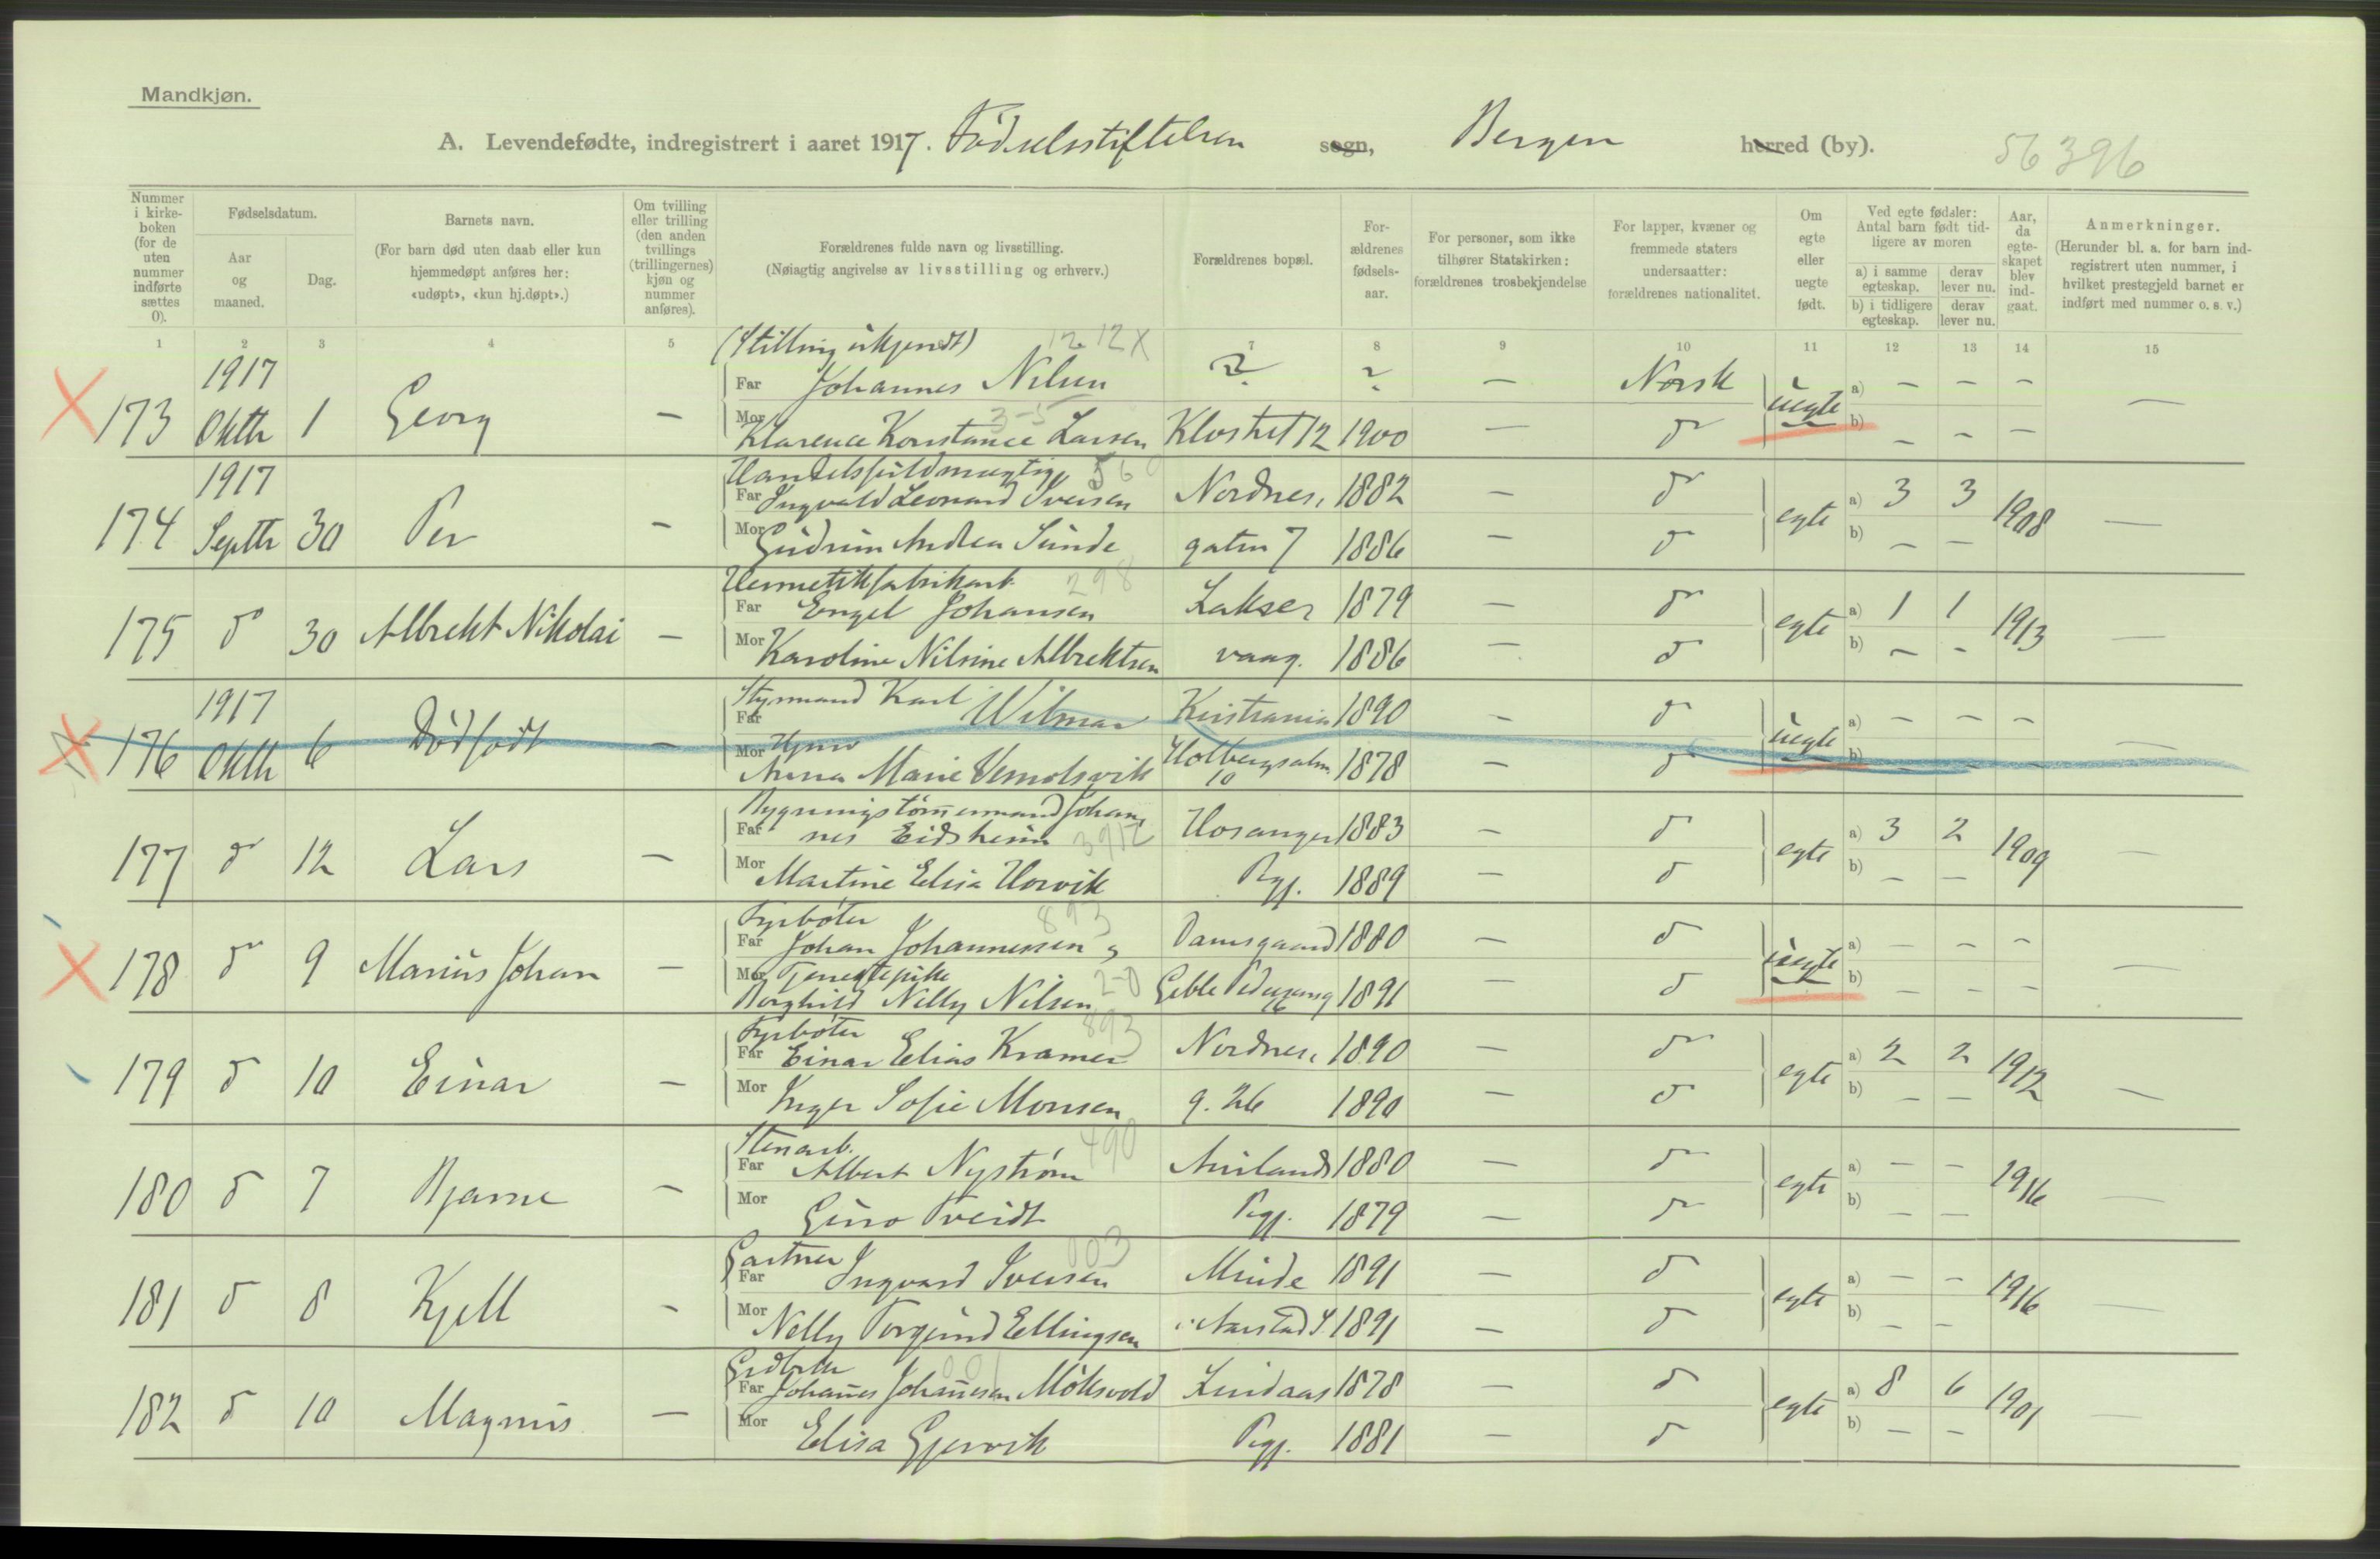 Mandkjøn.
A. Levendefødte, indregistrert i aaret 1917. Fødselsstiftelsen sogn, Bergen herred (by). 56 396
Nummer i kirkeboken (for de uten nummer indførte sættes 0).
Fødselsdatum.
Aar og maaned.
Dag.
Barnets navn.
(For barn død uten daab eller kun hjemmedøpt anføres her: «udøpt», «kun hj.døpt».)
Om tvilling eller trilling (den anden tvillings (trillingernes) kjøn og nummer anføres).
Forældrenes fulde navn og livsstilling.
(Nøiagtig angivelse av livsstilling og erhverv.)
Forældrenes bopæl.
Forældrenes fødselsaar.
For personer, som ikke tilhører Statskirken: forældrenes trosbekjendelse
For lapper, kvæner og fremmede staters undersaatter: forældrenes nationalitet.
Om egte eller uegte født.
Ved egte fødsler: Antal barn født tidligere av moren
a) i samme egteskap. derav lever nu.
b) i tidligere egteskap. derav lever nu.
Aar, da egteskapet blev indgaat.
Anmerkninger.
(Herunder bl. a. for barn indregistrert uten nummer, i hvilket prestegjeld barnet er indført med nummer o. s. v.)
1 2 3 4 5 7 8 9 10 11 12 13 14 15
(Stilling ukjendt) 12 12 X
1917 Far Johannes Nilsen ? ? — Norsk a) — — —
173 Oktb 1 Georg — Mor Klarence Konstance Larsen Klostret 12 1900 — d uegte b) — — — —
1917 Handelsfuldmægtig 560
Far Ingvald Leonard Iversen Nordnes 1882 — d a) 3 3
174 Septb 30 Per — Mor Gudrun Andrea Sunde gaten 7 1886 — d egte b) — — 1908 —
Hermetikfabrikarb. 298
Far Engel Johansen Lakse 1879 — d a) 1 1
175 d 30 Albrekt Nikolai — Mor Karoline Nilsine Albrektsen vaag. 1886 — d egte b) — — 1913 —
1917 Styrmand Karl
Far Wilmar Kristiania 1890 — d a) — — —
176 Oktb 6 Dødfødt — Mor Anna Marie Holbergsalm 10 1878 — d uegte b) —
Bygningstømmermand Johan
Far nes Eidsheim 3912 Hosanger 1883 — d a) 3 2
177 d 12 Lars — Mor Martine Elisa Horvik Pgj. 1889 — d egte b) — — 1909 —
Fyrbøter 893
Far Johan Johannessen Damsgaard 1880 — d a) — — —
Tjenestepike 2-0
178 d 9 Marius Johan — Mor Borghild Nelly Nilsen Geble Pedersens g 16 1891 — d uegte b) — — — —
Fyrbøter 893
Far Einar Elias Kramer Nordnes 1890 — d a) 2 2
179 d 10 Einar — Mor Inger Sofie Monsen g. 26 1890 — d egte b) — — 1912 —
Stenarb. 490
Far Albert Nystrøm Aurlands 1880 — d a) — —
180 d 7 Bjarne — Mor Tveidt Pgj. 1879 — d egte b) — — 1916 —
Gartner 003
Far Ingvard Iversen Minde 1891 — d a) — —
181 d 8 Kjell — Mor Nelly Torgund Ellingsen i Aarstad S. 1891 — d egte b) — — 1916 —
Grdbrker 001
Far Johannes Johannesen Mòksvold Lindaas 1878 — d a) 8 6
182 d 10 Magnus — Mor Elisa Gjervik Pgj. 1881 — d egte b) — — 1901 —